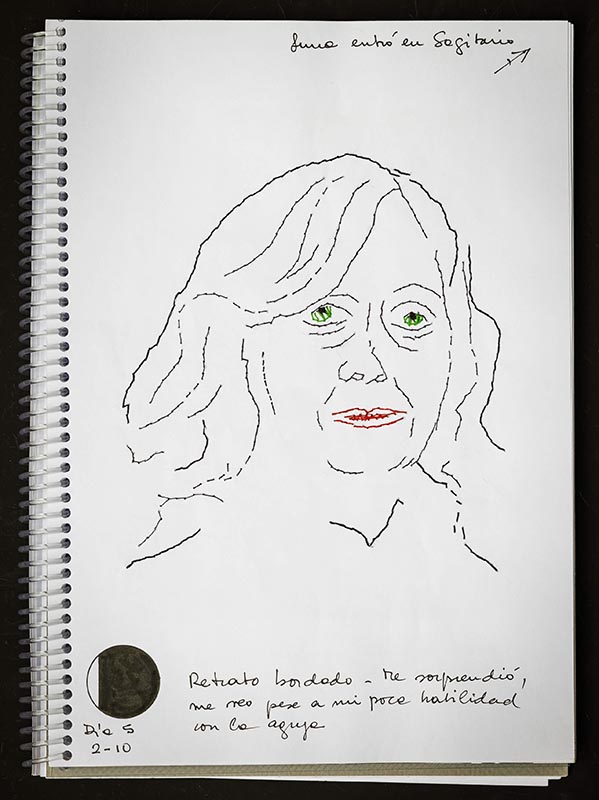 Luna entró en Sagitario
Retrato bordado - Me sorprendió,
me veo pese a mi poca habilidad
con la aguja
Día 5
2-10